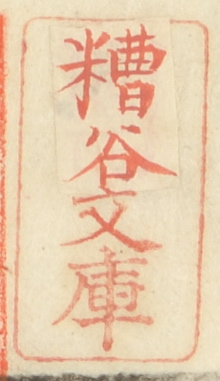 糟谷文庫